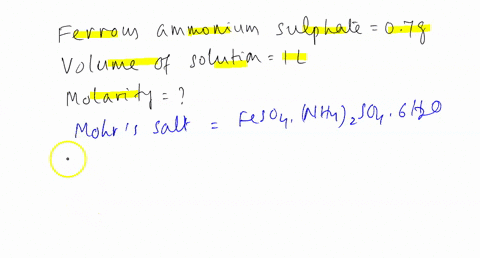 Ferrous ammonium sulphate = 0.7g
Volume of solution = 1L
Molarity = ?
Mohr's salt = FeSO4. (NH4)2SO4. 6H2O